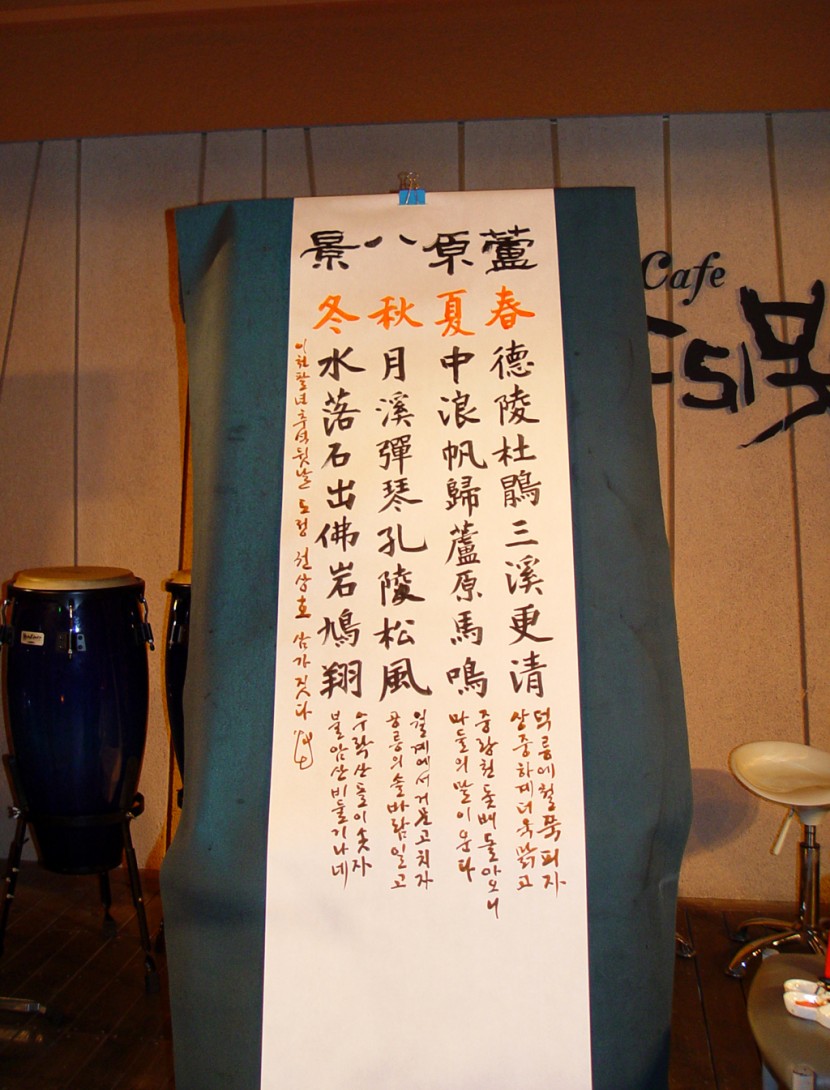 蘆原八景
春
德陵杜鵑三溪更清
덕릉에철쭉피자
상중하계더욱맑고
夏
中浪帆歸蘆原馬鳴
중랑천돛배돌아오니
마들의말이운다
秋
月溪彈琴孔陵松風
월계에서거문고치자
공릉의솔바람일고
冬
水落石出佛岩鳩翔
수락산돌이솟자
불암산비둘기나네
이천팔년추석뒷날 도정 천상호 삼가짓다
Cafe